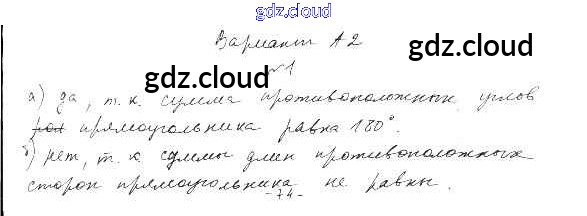 gdz.cloud
Вариант А2
gdz.cloud gdz.cloud
№1
а) да, т.к. сумма противоположных углов
прямоугольника равна 180°.
б) нет, т.к суммы длин противоположных
сторон прямоугольника не равны.
-74-
gdz.cloud